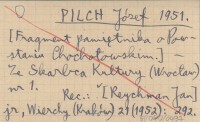 PILCH Józef 1951.
[Fragment pamiętnika o Pow-
staniu Chochołowskim.] –
Ze Skarbca Kultury (Wrocław)
nr 1.
Rec.: "[Reychman Jan]
jr, Wierchy (Kraków) 21 (1952): 292.